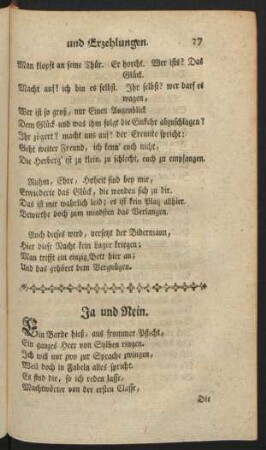 und Erzehlungen. 77
Man klopft an seine Thür. Er horcht. Wer ists? Das
Glück.
Macht auf! ich bin es selbst. Ihr selbst? wer darf es
wagen,
Wer ist so groß, nur Einen Augenblick
Dem Glück und was ihm folgt die Einkehr abzuschlagen?
Ihr zögert? macht uns auf! der Fremde spricht:
Geht weiter Freund, ich kenn' euch nicht,
Die Herberg' ist zu klein, zu schlecht, euch zu empfangen.
Ruhm, Ehre, Hoheit sind bey mir,
Erwiederte das Glück, die wenden sich zu dir.
Das ist mir wahrlich leid; es ist kein Platz allhier.
Bewirthe doch zum mindsten das Verlangen.
Auch dieses wird, versetzt der Bidermann,
Hier diese Nacht kein Lager kriegen;
Man trifft ein einzig Bett hier an;
Und das gehöret dem Vergnügen.
Ja und Nein.
Ein Barde hieß, aus frommer Pflicht,
Ein ganzes Heer von Sylben ringen.
Ich will nur zwo zur Sprache zwingen,
Weil doch in Fabeln alles spricht.
Es sind die, so ich reden lasse,
Machtwörter von der ersten Classe,
Die